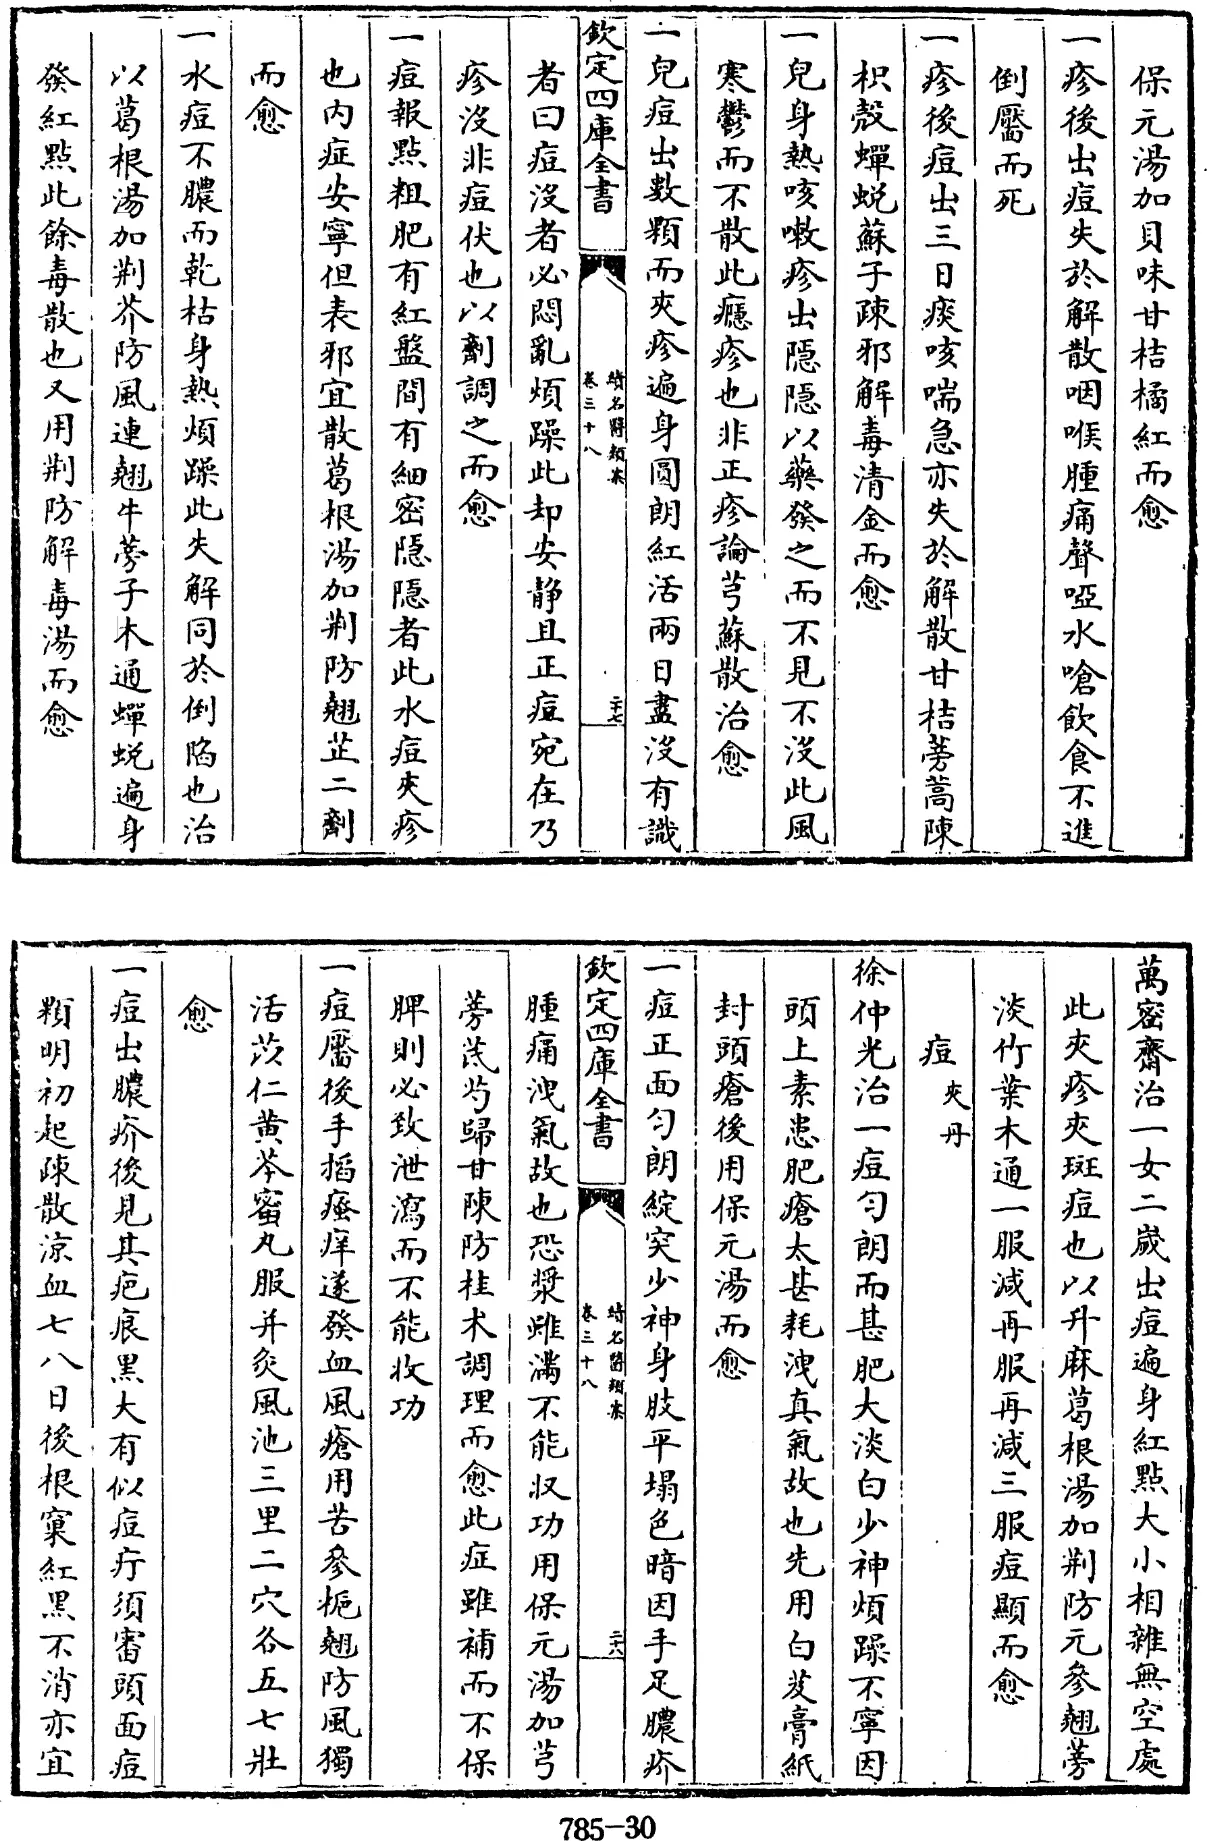 保元湯加貝味甘桔橘紅而愈
一疹後出痘失於解散咽喉腫痛聲啞水嗆飲食不進
倒靨而死
一疹後痘出三日痰咳喘急亦失於解散甘桔蒡蒿陳
枳殼蟬蛻蘇子疎邪解毒清金而愈
一兒身熱咳嗽疹出隱隱以藥發之而不見不沒此風
寒鬱而不散此癮疹也非正疹論芎蘇散治愈
一兒痘出數顆而夾疹遍身圓朗紅活兩日盡沒有識
欽定四庫全書
續名醫類案
卷三十八
二十七
者曰痘沒者必悶亂煩躁此却安靜且正痘宛在乃
疹沒非痘伏也以劑調之而愈
一痘報點粗肥有紅盤間有細密隱隱者此水痘夾疹
也內症安寧但表邪宜散葛根湯加荆防翹芷二劑
而愈
一水痘不膿而乾枯身熱煩躁此失解同於倒陷也治
以葛根湯加荆芥防風連翹牛蒡子木通蟬蛻遍身
發紅點此餘毒散也又用荆防解毒湯而愈
萬密齋治一女二歲出痘遍身紅點大小相雜無空處
此夾疹夾斑痘也以升麻葛根湯加荆防元參翹蒡
淡竹葉木通一服減再服再減三服痘顯而愈
痘夾丹
徐仲光治一痘匀朗而甚肥大淡白少神煩躁不寧因
頭上素患肥瘡太甚耗洩真氣故也先用白芨膏紙
封頭瘡後用保元湯而愈
一痘正面匀朗綻突少神身肢平塌色暗因手足膿疥
欽定四庫全書
續名醫類案
卷三十八
二六
腫痛洩氣故也恐漿雖滿不能收功用保元湯加芎
蒡芪芍歸甘陳防桂术調理而愈此症雖補而不保
脾則必致泄瀉而不能收功
一痘靨後手搯瘙痒遂發血風瘡用苦參梔翹防風獨
活苡仁黄芩蜜丸服并灸風池三里二穴各五七壯
愈
一痘出膿疥後見其疤痕黑大有似痘疔須審頭面痘
顆明初起疎散涼血七八日後根窠紅黑不消亦宜
785-30